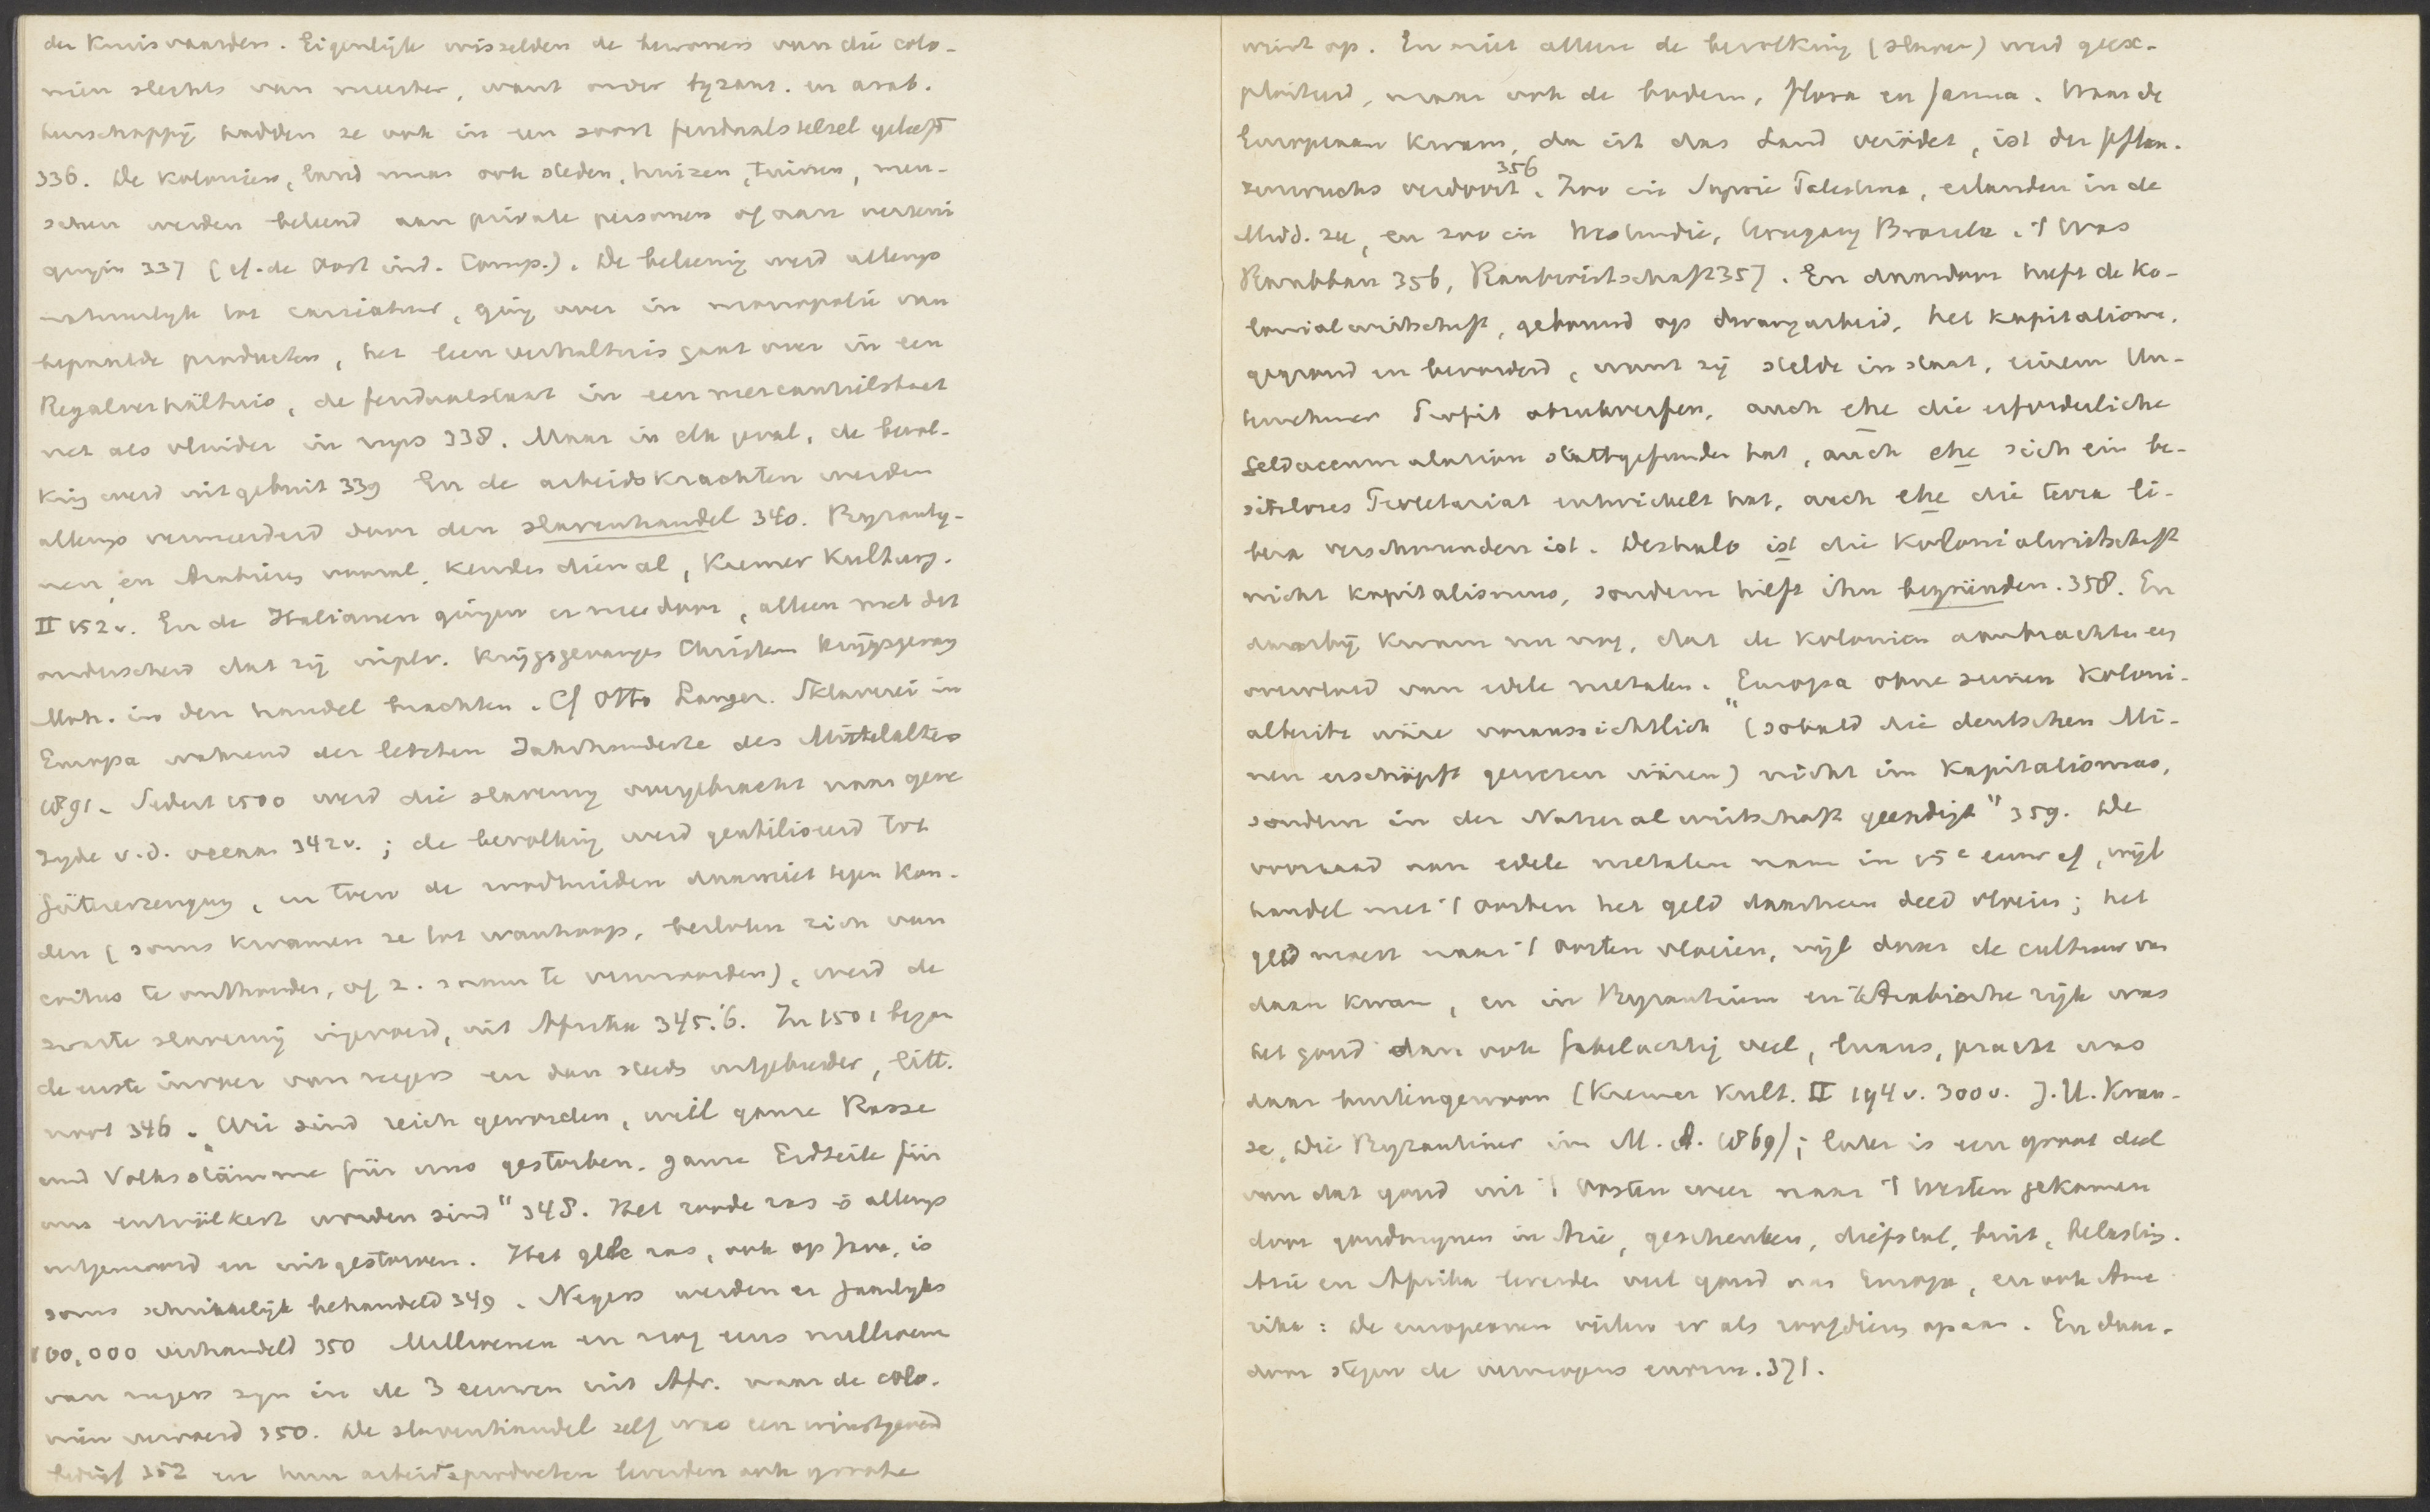 der Kruisvaarders. Eigenlijk wisselden de bewoners van die colo-
niën slechts van meester, want onder byzant. en arab.
heerschappij hadden ze ook in een soort feudaalstelsel geleefd
336. De Koloniën, land maar ook steden, huizen, tuinen, men-
schen werden beleend aan private personen of aan vereeni
gingen 337 (cf. de Oost ind. Comp.). De beleening werd allengs
natuurlijk tot, ging over in monopolie van
bepaalde producten, het leenverhaltnis gaat over in een
Regalverhältnis, de feudaalstaat in een mercantilstaat
net als elders in 338. Maar in elk geval, de bevol-
king werd uitgebuit 339 En de arbeidskrachten werden
allengs vermeerderd door den slavenhandel 340. Byzanty-
nen, en Arabieren vooral, kenden dien al, Kremer Kulturg.
II 152v. En de Italianen gingen er mee door, alleen met dit
onderscheid dat zij inplv. krijgsgevangen Christen krijgsgevang
Moh. in den handel brachten. Cf Otto Langer. Sklaverei in
Europa während der letzten Jahrhunderte des Mittelalters
1891. Sedert 1500 werd die slaverny overgebracht naar gene
zyde v.d. oceaan 342v.; de bevolking werd geutiliseerd tot
Gütererzeugung, en toen de roodhuiden daar niet tegen kon-
den (soms kwamen ze tot wanhoop, besloten zich van
coitus te onthouden, of z. samen te vermoorden), werd de
zwarte slaverny ingevoerd, uit Afrika 345.'6. In 1501 begon
de eerste invoer van negers en dan steeds uitgebreider, litt.
noot 346. „Wir sind reich geworden, weil ganze Rasse
und Volksstämme für uns gestorben, ganze Erdteile für
uns entvölkert worden sind" 348. Het roode ras is allengs
uitgemoord en uitgestorven. Het gele ras, ook op Java, is
soms schrikkelijk behandeld 349. Negers werden er jaarlyks
100,000 verhandeld 350 Millioenen en nog eens millioenen
van negers zyn in de 3 eeuwen uit Afr. naar de colo-
niën vervoerd 350. De slavenhandel zelf was een winstgevend
bedrijf 352 en hun arbeidsproducten leverden ook groote
winst op. En niet alleen de bevolking (slaven) werd geëx-
ploiteerd, maar ook de bodem, flora en fauna. Waar de
Europeaan kwam, da ist das Land verödet, ist der Pflan-
zenwuchs verdorrt 356. Zoo in Syrië Palestina, eilanden in de
Midd. zee, en zoo in Westindië, Uruguay Brazilië. 't Was
Raubbau 356, Raubwirtschaft 357. En daardoor heeft de Ko-
lonialwirtschaft, gebouwd op dwangarbeid, het kapitalisme
gegrond en bevorderd, want zij stelde in staat, einem Un-
ternehmer Profit abzuwerfen, auch ehe die erforderliche
Geldaccumulation stattgefunden hat, auch ehe sich ein be-
sitzloses Proletariat entwickelt hat, auch ehe die terra li-
bera verschwunden ist. Deshalb ist die Kolonialwirtschaft
nicht Kapitalismus, sondern hilft ihn begründen. 358. En
daarbij kwam nu nog, dat de Koloniën aanbrachten een
overvloed van edele metalen. „Europa ohne seinen Koloni-
albesitz wäre voraussichtlich (sobald die deutschen Mi-
nen erschöpft gewesen wären) nicht im Kapitalismus,
sondern in der Naturalwirtschaft geendigt" 359. De
voorraad van edele metalen nam in 15e eeuw af, wijl
handel met 't Oosten het geld daarheen deed vloeien; het
geld moest naar 't Oosten vloeien, wijl daar de cultuur van
daan kwam, en in Byzantium en 't Arabische rijk was
het goud dan ook fabelachtig veel, luxus, pracht was
daar buitengewoon (Kremer Kult. II 194v. 300v. J.H. Krau-
se, Die Byzantiner im M.A. 1869); later is een groot deel
van dat goud uit 't Oosten weer naar 't Westen gekomen
door goudmynen in Azië, geschenken, diefstal, buit, belasting.
Azië en Afrika leverden veel goud aan Europa, en ook Ame
rika: de europeanen vielen er als roofdieren op aan. En daar-
door stegen de vermogens enorm. 371.